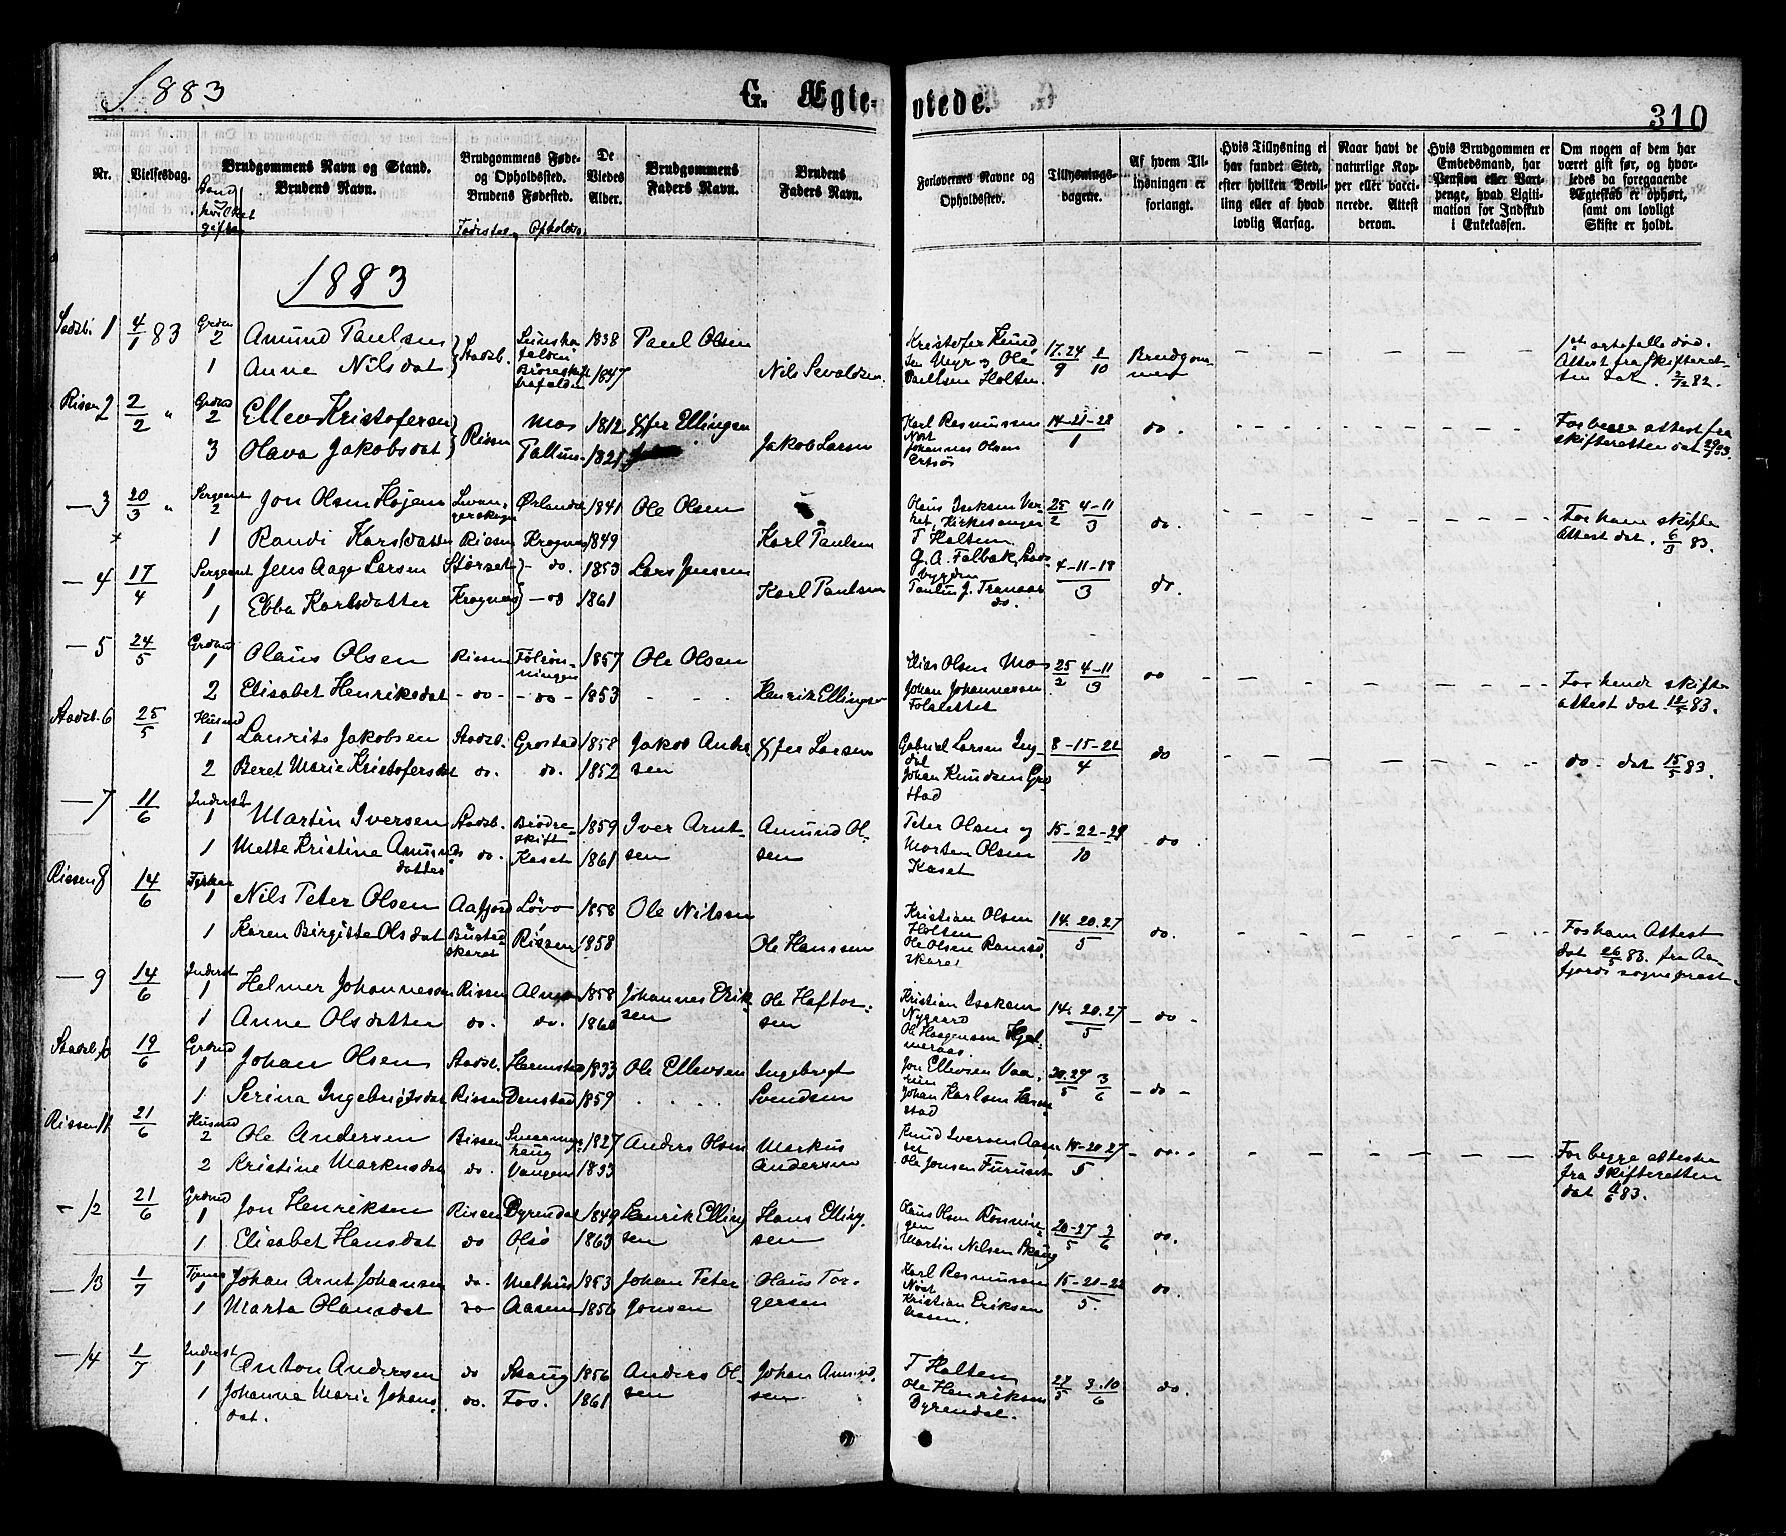 1883
G. Ægte- viede.
310
Nr.
Vielsesdag.
Brudgommens Navn og Stand.
Brudens Navn.
Brudgommens Føde-
og Opholdssted.
Brudens Fødested.
De
Viedes
Alder.
Brudgommens
Faders Navn.
Brudens
Faders Navn.
Forlovernes Navne og
Opholdssted.
Tillysnings-
dagene.
Af hvem Til-
lysningen er
forlangt.
Hvis Tillysning ei
har fundet Sted,
efter hvilken Bevil-
ling eller af hvad
lovlig Aarsag.
Naar havt de
naturlige Kop-
per eller vacci-
nerede. Attest
derom.
Hvis Brudgommen er
Embedsmand, har
Pension eller Vart-
penge, hvad Ligiti-
mation for Indskud
i Enkekassen.
Om nogen af dem har
været gift før, og hvor-
ledes da foregaaende
Ægteskab er ophørt,
samt om lovligt
Skifte er holdt.
hvilket
Fødested Opholdss.
1883
Stadsb. 1 4/1 83 2 Amund Paulsen Stadsb. 1838 Paul Olsen
1 Anne Nilsdat 1847 Nils Sevaldsen
Kristofer Knud
sen og Ole
Paulsen Holten
17. 24 1
9 10
Brudgom-
men
Attest fra Skifteret-
ten dat.
Rissen 2 2/2 " Grdmd 2 Ellev Kristofersen Rissen Moe 1812 Kfer Ellingsen
3 Olava Jakobsdat 1821 Jakob Larsen
Karl Rasmussen
Johannes Olsen
14-21-28
1
do.
For begge attest fra
skifteretten dat
— 3 20/3 " Sergeant 2 Jon Olsen Højem Ørlandet 1841 Ole Olsen
1 Randi Karlsdatter Rissen Kragnes 1849 Karl Paulsen
Olaus Isaksen
Kirkesanger
T Holten
25/2 4-11/3
do.
For ham skifte
Attest dat. 6/3 83.
— 4 17/4 Sergeant 1 Jens Aage Larsen Størset - do. 1853 Lars Jensen
1 Ebba Karlsdatter Kragnes - do 1861 Karl Paulsen
4-11-18
3
do
— 5 24/5 Grdmd 1 Olaus Olsen Rissen 1857 Ole Olsen
2 Elisabet Henriksdat - do - - do - 1853 Henrik Ellingsen
Elias Olsen Moe
Johan Johannesen
25/2 4-11/3
do
For hende skifte
attest dat 83.
Stadsb. 6 25/5 Husmd 1 Laurits Jakobsen Stadsb. Grøstad 1858 Jakob Andre
2 Beret Marie Kristofersdat do. do. 1852 sen
Kfer Larsen
Gabriel Larsen
Johan Knudsen Grø
stad
8-15-22
4
do
do. dat 15/5 83.
— 7 11/6 Inderst 1 Martin Iversen Stadsb. 1859 Iver Arnt-
sen
1 Mette Kristine Amunds
datter do. Kaset 1861 Amund Ol-
sen
Peter Olsen og
Morten Olsen
Kaset
15-22-29
10
do
Rissen 8 14/6 1 Nils Peter Olsen Aafjord Løvø 1858 Ole Nilsen
1 Karen Birgitte Olsdat Rissen 1858 Ole Hanssen
Kristian Olsen
Holten
Ole Olsen
skaret
14. 20. 27
5
do.
For ham Attest
dat 26/5 83. fra Aa-
fjords sogneprest
— 9 14/6 Inderst 1 Helmer Johannesen Rissen 1858 Johannes Erik-
sen
1 Anne Olsdatter do. do. 1860 Ole Haftor-
sen
Kristian Isaksen
Nygaard
14. 20. 27
5
- do -
Stadsb. 10 19/6 Grdmd 1 Johan Olsen Stadsb. Hermstad 1833 Ole Ellevsen
1 Serina Ingebrigtsdat Rissen Denstad 1859 Ingebrigt
Svendsen
Jon Ellevsen
Johan Karlsen Herm
stad
20. 27 3
5 6
- do -
Rissen 11 21/6 Husmd 2 Ole Andersen Rissen 1827 Anders Olsen
2 Kristine Markusdat do. Vangen 1833 Markus
Andersen
Knud Iversen
Ole Jonsen Furuset
14-20-27
5
- do. -
For begge attester
fra Skifteretten
dat 83.
— 12 21/6 Grdmd 1 Jon Henriksen Rissen Dyrendal 1849 Henrik Elling
sen
1 Elisabet Hansdat do Olsø 1863 Hans Elling
sen
Olaus Olsen Rønnin-
gen
Martin Nilsen Skaug
20-27 3
5 6
do.
— 13 1/7 1 Johan Arnt Johansen do. Melhus 1853 Johan Peter
Jonsen
1 Marta Olausdat do Aasen 1856 Olaus Tor-
gersen
Karl Rasmussen
Kristian Eriksen
Aasen.
15-21-22
5.
do.
— 14 1/7 Inderst 1 Anton Andersen do Skaug 1856 Anders Ol-
sen
1 Johanna Marie Johans
dat. do. Fos. 1861 Johan Amund
sen
T Holten
Ole Henriksen
Dyrendal.
27/5 3.10/6
do.